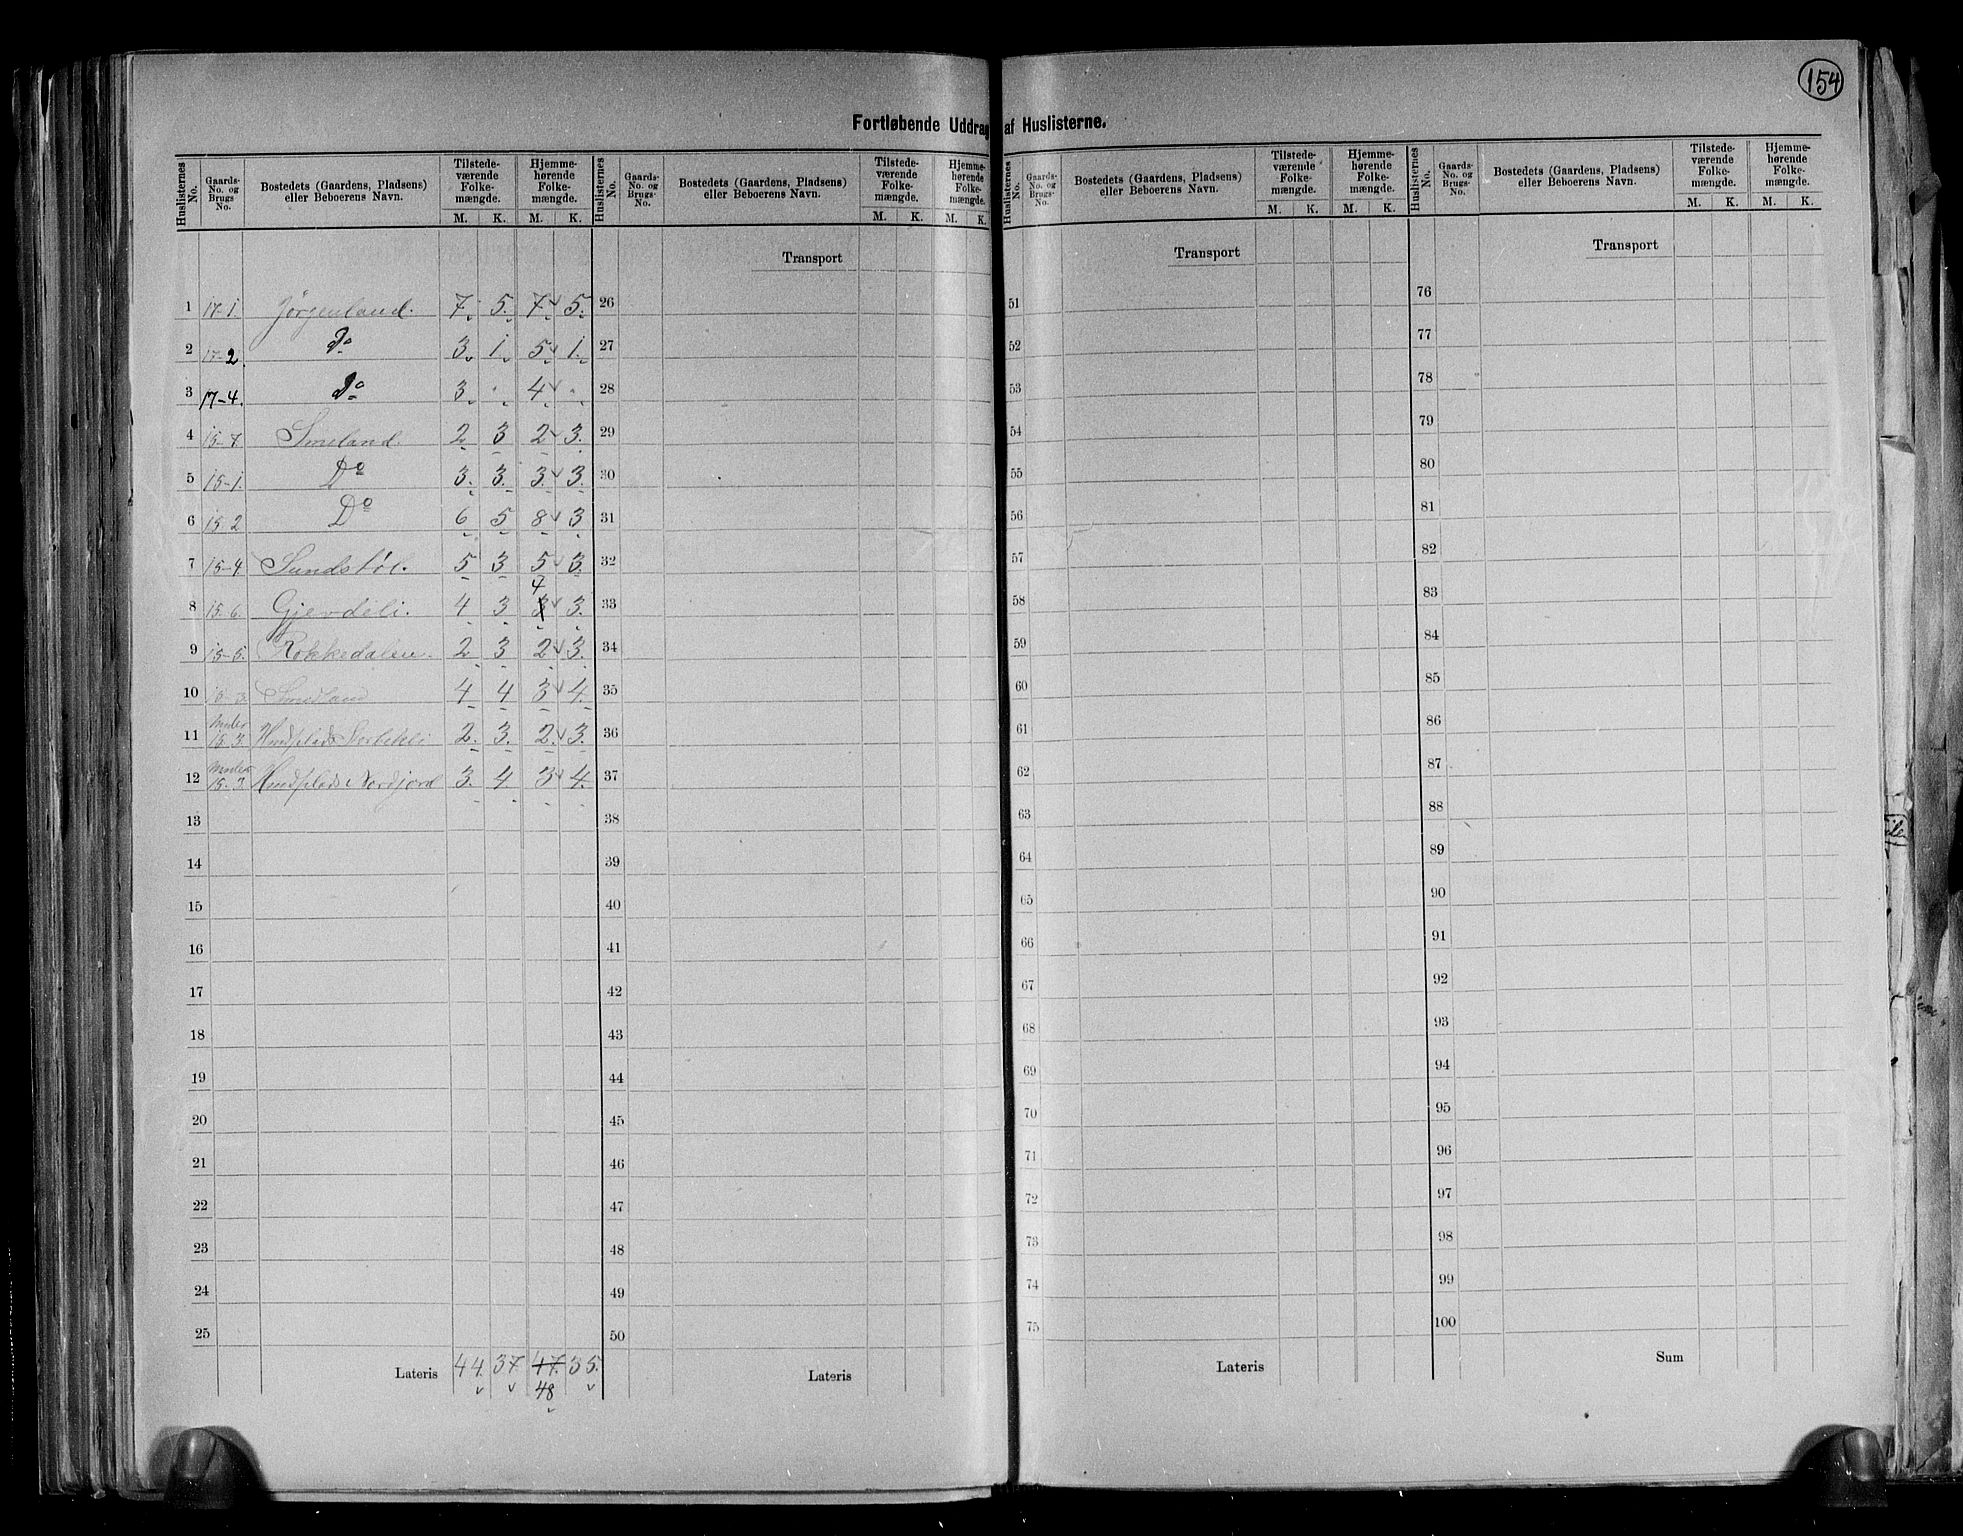 154
Fortløbende Uddrag af Huslisterne.
Huslisternes No. Gaards-No. og Brugs-No. Bostedets (Gaardens, Pladsen) eller Beboerens Navn. Tilstedeværende Folkemængde. M. K. Hjemmehørende Folkemængde. M. K.
Huslisternes No. Gaards-No. og Brugs-No. Bostedets (Gaardens, Pladsen) eller Beboerens Navn. Tilstedeværende Folkemængde. M. K. Hjemmehørende Folkemængde. M. K.
Huslisternes No. Gaards-No. og Brugs-No. Bostedets (Gaardens, Pladsen) eller Beboerens Navn. Tilstedeværende Folkemængde. M. K. Hjemmehørende Folkemængde. M. K.
Huslisternes No. Gaards-No. og Brugs-No. Bostedets (Gaardens, Pladsen) eller Beboerens Navn. Tilstedeværende Folkemængde. M. K. Hjemmehørende Folkemængde. M. K.
1 17-1. Jørgenland. 7. 5. 7. 5.
2 17-2 Do 3. 1. 5. 1.
3 17-4. Do 3. . 4. .
4 15-7. Smeland. 2 3 2 3.
5 15-1. Do 3. 3. 3. 3.
6 15-2 Do 6 5 8 3
7 15-4 Sundstøl. 5 3 5 3.
8 15-6. Gjevdeli. 4 3 3 4 3.
9 15-5. Rokkedalen. 2 3 2 3.
10 Smedland 4 4 3 4.
11 under 15.3. Huusplads 2. 3. 2. 3.
12 under 15.3. Huusplads Nordjord 3. 4. 3 4.
13
14
15
16
17
18
19
20
21
22
23
24
25
Lateris 44. 37. 47. 35.
48
Transport
26
27
28
29
30
31
32
33
34
35
36
37
38
39
40
41
42
43
44
45
46
47
48
49
50
Lateris
Transport
51
52
53
54
55
56
57
58
59
60
61
62
63
64
65
66
67
68
69
70
71
72
73
74
75
Lateris
Transport
76
77
78
79
80
81
82
83
84
85
86
87
88
89
90
91
92
93
94
95
96
97
98
99
100
Sum